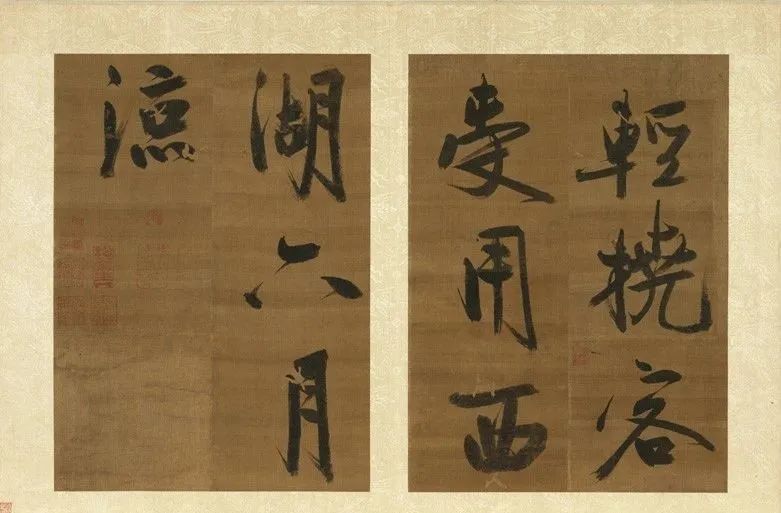 輕橈客
受用西
湖六月
涼